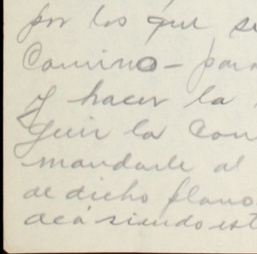 por los que se
Camino - para
y hacer la
guir la Con
mandarle al
de dicho plano
acá siendo est